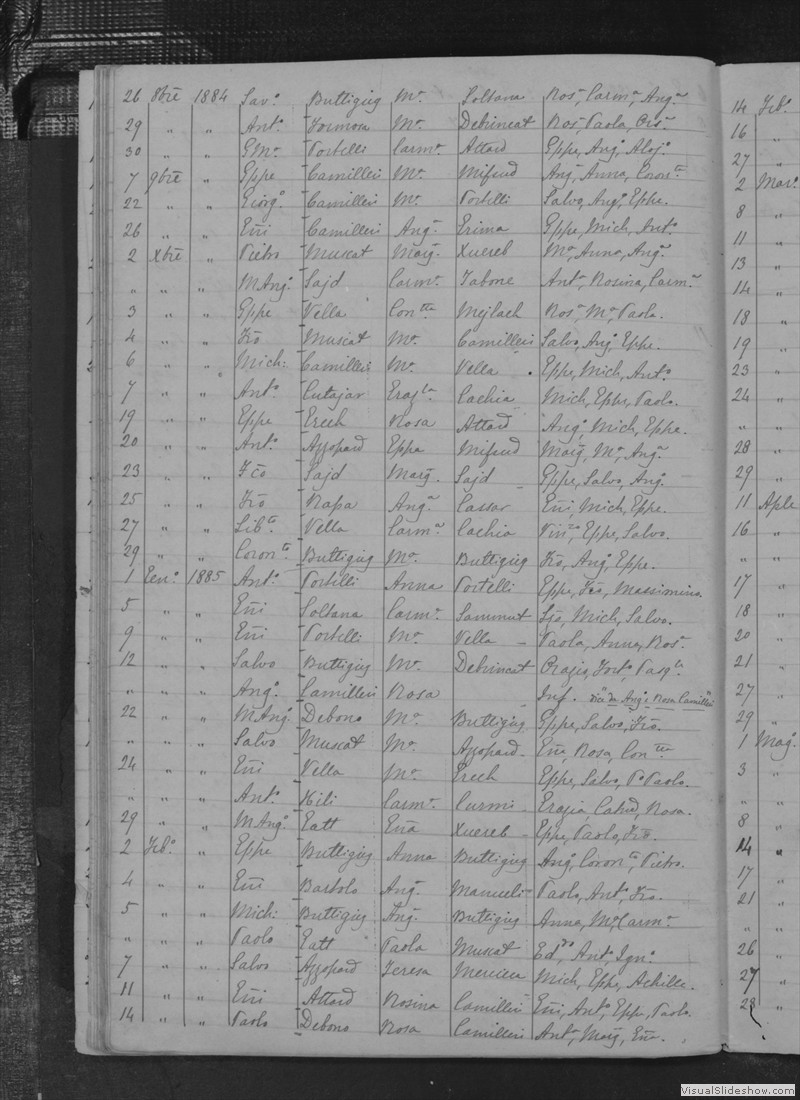 26 8bre 1884 Sav.o Buttigieg M.a Soltana Ros.a, Carm.a, Ang.a
29 " " Ant.o Formosa M.a Debrincat Ros.a, Paola,
30 " " Portelli Carm.a Attard Eppe, Ang.o, Aloj.o
7 9bre " Eppe Camilleri M.a Mifsud Ang, Anna, Coron.ta
22 " " Giorg.o Camilleri M.a Portelli Salvo, Ang.o, Eppe.
26 " " Eñi Camilleri Ang.a Erima Eppe, Mich, Ant.o
2 Xbre " Pietro Muscat Marg. Xuereb M.a, Anna, Ang.a
" " " M Ang.o Sajd Carm.a Tabone Ant.a, Rosina, Carm.a
3 " " Eppe Vella Con.tta Mejlach Ros.a, M.a, Paola.
4 " " Fco Muscat M.a Camilleri Salvo, Ang.o, Eppe.
6 " " Mich: Camilleri M.a Vella Eppe, Mich, Ant.o
7 " " Ant.o Cutajar Cachia Mich, Eppe, Paolo.
19 " " Eppe Grech Rosa Attard Ang.o, Mich, Eppe.
20 " " Ant.o Azzopard Eppa Mifsud Marg, M.a, Ang.a
23 " " Fco Sajd Marg. Sajd Eppe, Salvo, Ang.o
25 " " Fco Rapa Ang.a Cassar Eñi, Mich, Eppe.
27 " " Lib.ta Vella Carm.a Cachia Vin.zo, Eppe, Salvo.
29 " " Coron.to Buttigieg M.a Buttigieg Fco, Ang.o, Eppe.
1 Gen.o 1885 Ant.o Portelli Anna Portelli Eppe, Fco, Massimino.
5 " " Eñi Soltana Carm.a Sammut Fco, Mich, Salvo.
9 " " Eñi Portelli M.a Vella Paola, Anna, Ros.a
12 " " Salvo Buttigieg M.a Debrincat Orazio, Fort.o, Pasq.le
" " " Ang.o Camilleri Rosa Inf. Ang.o e Rosa Camilleri
22 " " M Ang.o Debono M.a Buttigieg Eppe, Salvo, Fco.
" " " Salvo Muscat M.a Azzopard Eña, Rosa, Con.tta
24 " " Eñi Vella M.a Grech Eppe, Salvo, Paolo.
" " " Ant.o Kili Carm.a Curmi Grazia, Rosa.
29 " " M Ang.o Gatt Eña Xuereb Eppe, Paolo, Fco.
2 Feb.o " Eppe Buttigieg Anna Buttigieg Ang.o, Coron.to, Pietro.
4 " " Eñi Bartolo Ang.a Manueli Paolo, Ant.o, Fco.
5 " " Mich: Buttigieg Ang.a Buttigieg Anna, M.a, Carm.a
" " " Paolo Gatt Paola Muscat Ed.do, Ant.o, Ign.o
7 " " Salvo Azzopard Teresa Mercieca Mich, Eppe, Achille.
11 " " Eñi Attard Rosina Camilleri Eñi, Ant.o, Eppe, Paolo.
14 " " Paolo Debono Rosa Camilleri Ant.a, Marg, Eña.
14 Feb.o
16 "
27 "
2 Mar.o
8 "
11 "
13 "
14 "
18 "
19 "
23 "
24 "
" "
28 "
29 "
11 Aple
16 "
" "
17 "
18 "
20 "
21 "
27 "
29 "
1 Mag.o
3 "
" "
8 "
14 "
17 "
21 "
" "
26 "
27 "
28 "
VisualSlideshow.com